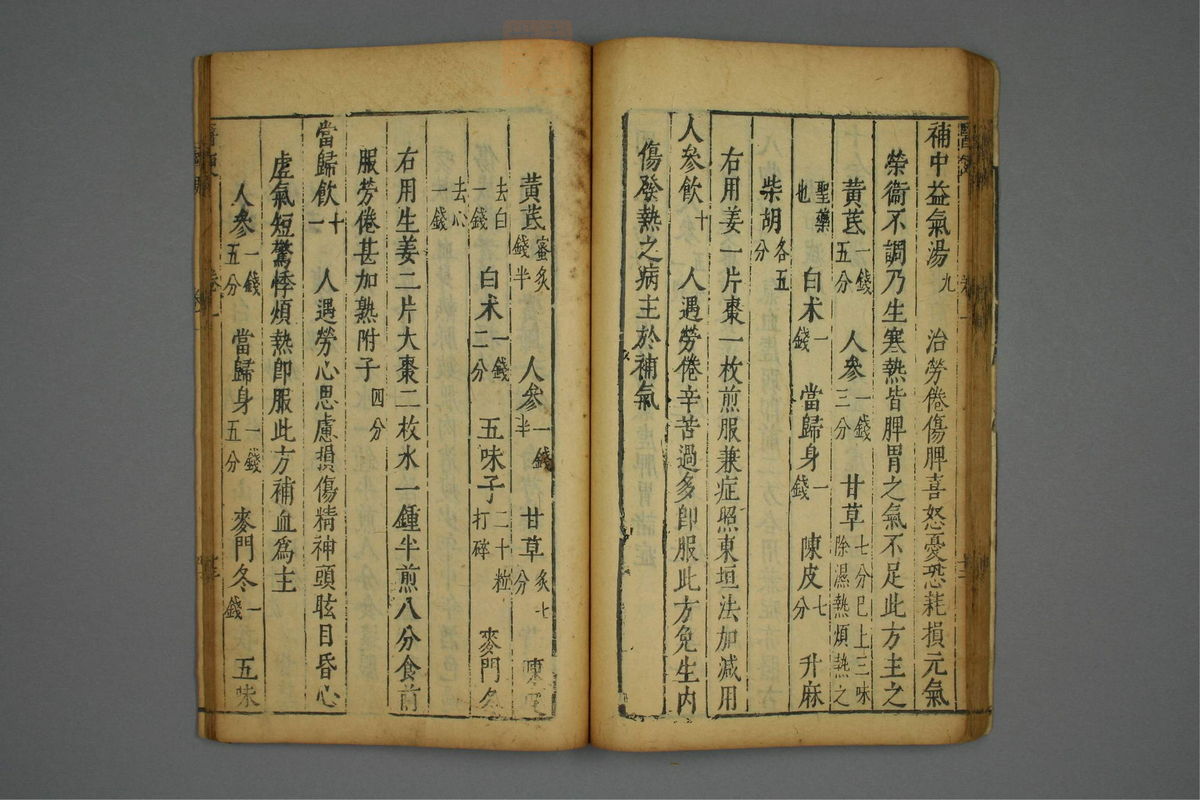 補中益氣湯九 治勞倦傷脾喜怒憂恐耗損元氣
榮衞不調乃生寒熱皆脾胃之氣不足此方主之
黃芪一錢五分 人參一錢三分 甘草七分已上三味除濕熱煩熱之
聖藥也 白术一錢 當歸身一錢 陳皮七分 升麻
柴胡各五分
右用姜一片棗一枚煎服兼症照東垣法加減用
人參飲十 人遇勞倦辛苦過多卽服此方免生內
傷發熱之病主於補氣
黃芪蜜炙錢半 人參一錢半 甘草炙七分 陳皮
去白一錢 白术一錢二分 五味子二十粒打碎 麥門冬
去心一錢
右用生姜二片大棗二枚水一鍾半煎八分食前
服勞倦甚加熟附子四分
當歸飲十一 人遇勞心思慮損傷精神頭眩目昏心
虛氣短驚悸煩熱卽服此方補血爲主
人參一錢五分 當歸身一錢五分 麥門冬一錢 五味